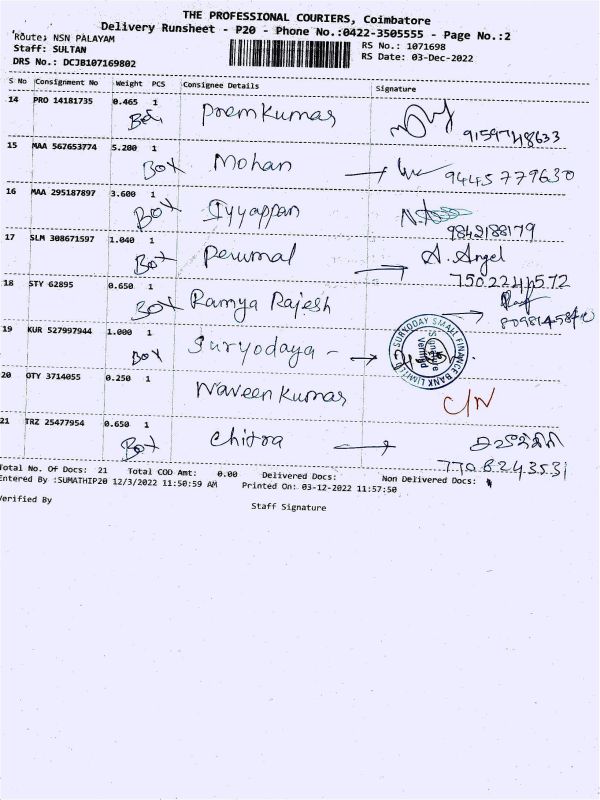 THE PROFESSIONAL COURIERS, Coimbatore
Delivery Runsheet - P20 - Phone No.:0422-3505555 - Page No.:2
Route: NSN PALAYAM
RS No.: 1071698
Staff: SULTAN
RS Date: 03-Dec-2022
DRS No.: DCJB107169802
S No Consignment No Weight PCS Consignee Details Signature
14 PRO 14181735 0.465 1 Premkumar
9159748633
15 MAA 567653774 5.200 1 Mohan
BOX 9445779630
16 MAA 295187897 3.600 1 Iyyappan
BOX 9842188179
17 SLM 308671597 1.040 1 Perumal A. Angel
BOX 7502244572
18 STY 62895 0.650 1 Ramya Rajesh
BOX
19 KUR 527997944 1.000 1 Suryodaya -
BOX SURYODAY SMALL FINANCE BANK LIMITED
20 OTY 3714055 0.250 1 Naveen Kumar C/N
21 TRZ 25477954 0.650 1 Chitra
BOX 7708243531
Total No. Of Docs: 21 Total COD Amt: 0.00 Delivered Docs: Non Delivered Docs:
Entered By :SUMATHIP20 12/3/2022 11:50:59 AM Printed On: 03-12-2022 11:57:50
Verified By Staff Signature